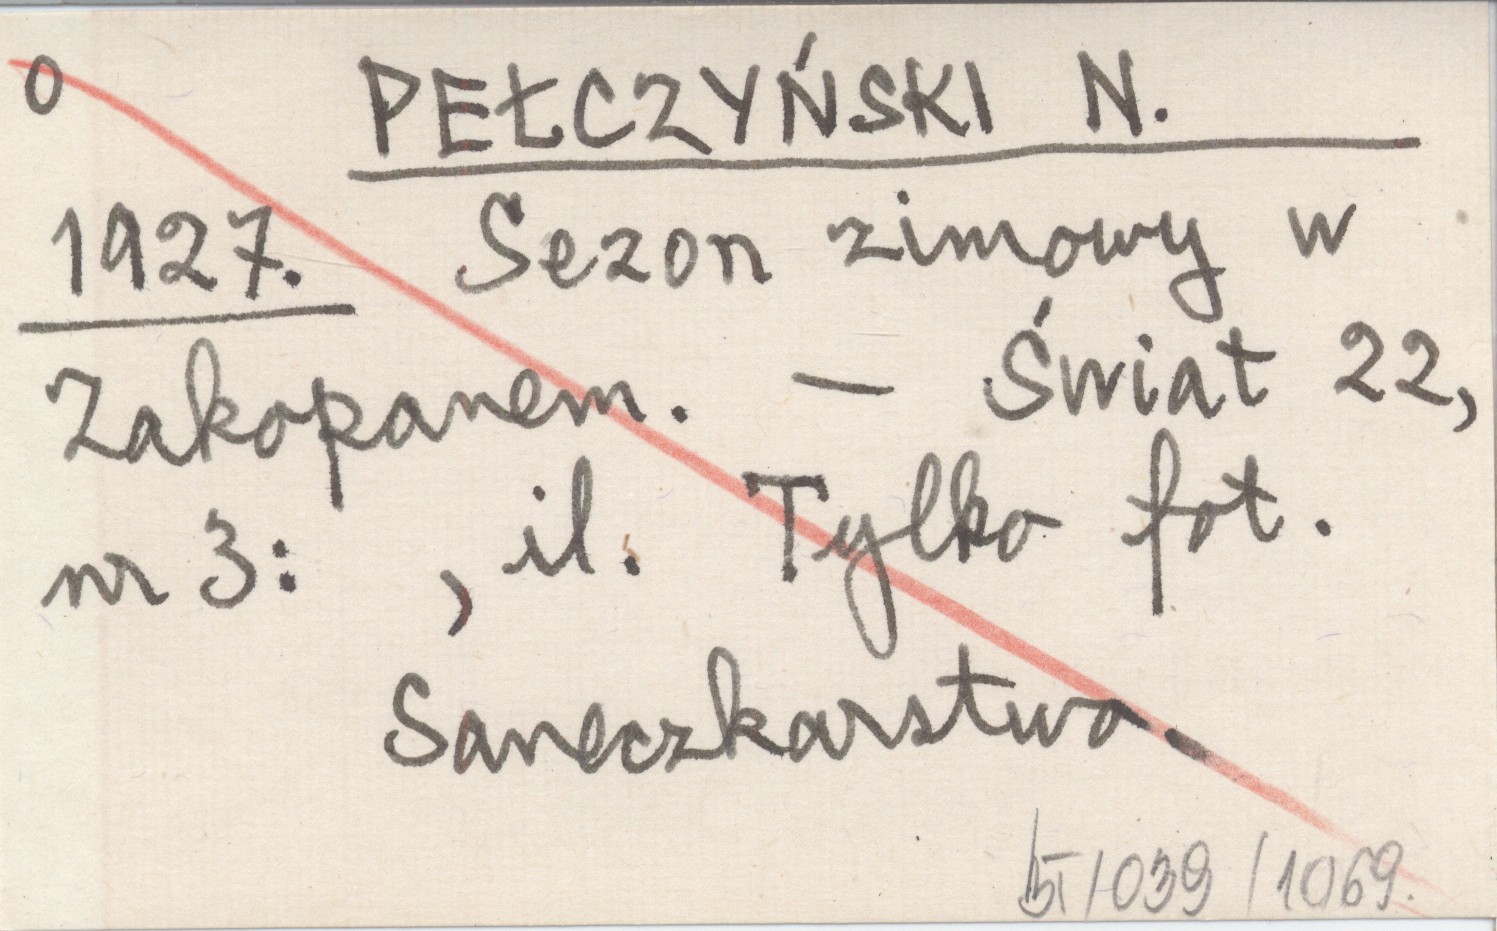 0 PEŁCZYŃSKI N.
1927. Sezon zimowy w
Zakopanem. — Świat 22,
nr 3: , il. Tylko fot.
Saneczkarstwo.
/039/1069.